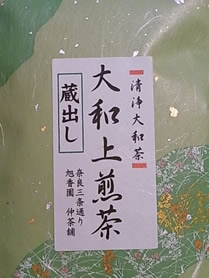 清浄大和茶
大和上煎茶
蔵出し
奈良三条通り
旭香園 仲茶舗